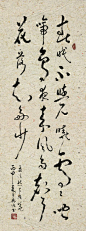 春眠不覺曉處處聞
啼鳥夜來風雨聲
花落知多少